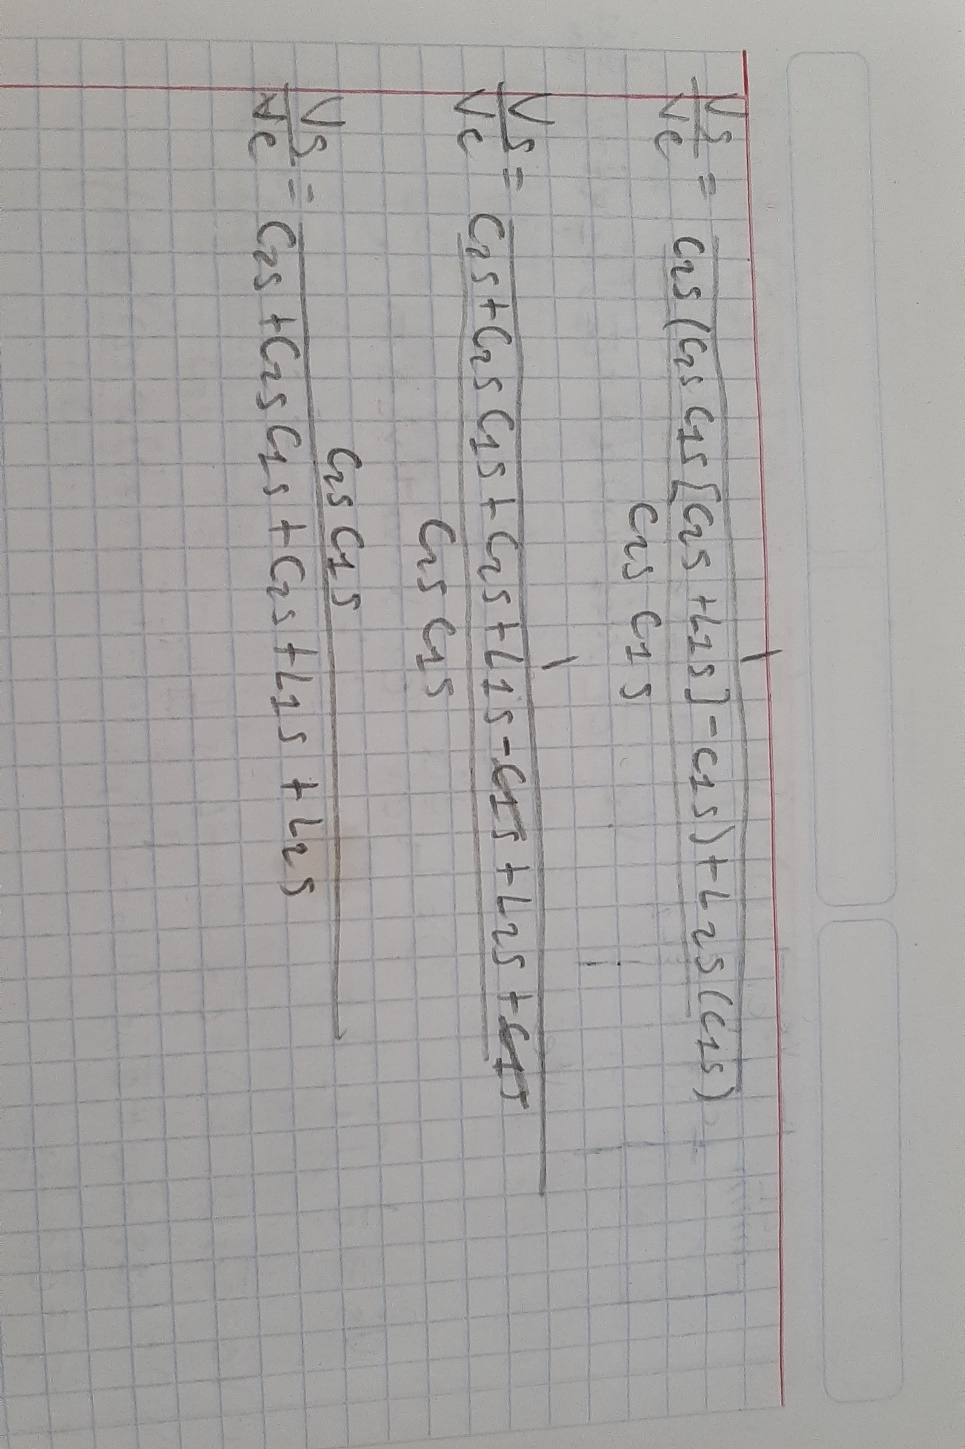 1
Vs/Ve = C2S(C2S C1S[C2S+L1S]-C1S)+L2S(C1S) =
C2S C1S
1
Vs/Ve = C2S+C2S C1S+C2S+L1S-C1S+L2S+C1S
C2S C1S
C2S C1S
Vs/Ve = C2S+C2S C1S+C2S+L1S+L2S